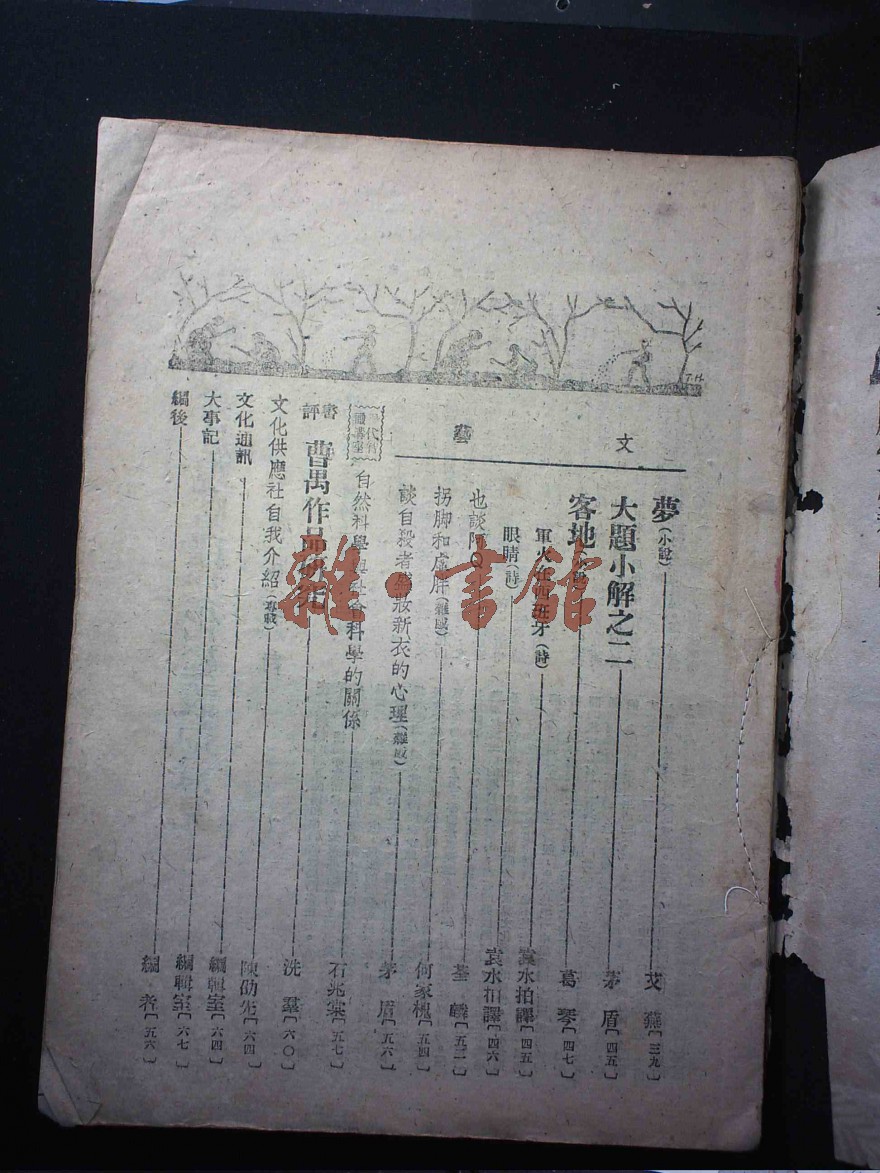 文藝
夢(小說) 艾蕪[三九]
大題小解之二 茅盾[四五]
客地 葛琴[四七]
軍火在西班牙(詩) 袁水拍譯[四五]
眼睛(詩) 袁水拍譯[四六]
也談阿Q 荃麟[五二]
拐脚和虛肝(雜感) 何家槐[五四]
談自殺者盛妝新衣的心理(雜感) 茅盾[五六]
自然科學與社會科學的關係 石兆棠[五七]
書評 曹禺作品研究 洗羣[六〇]
文化供應社自我介紹(專載) 陳劭先[六四]
文化通訊 編輯室[六四]
大事記 編輯室[六七]
編後 編者[五六]
T.H.
雜·書館